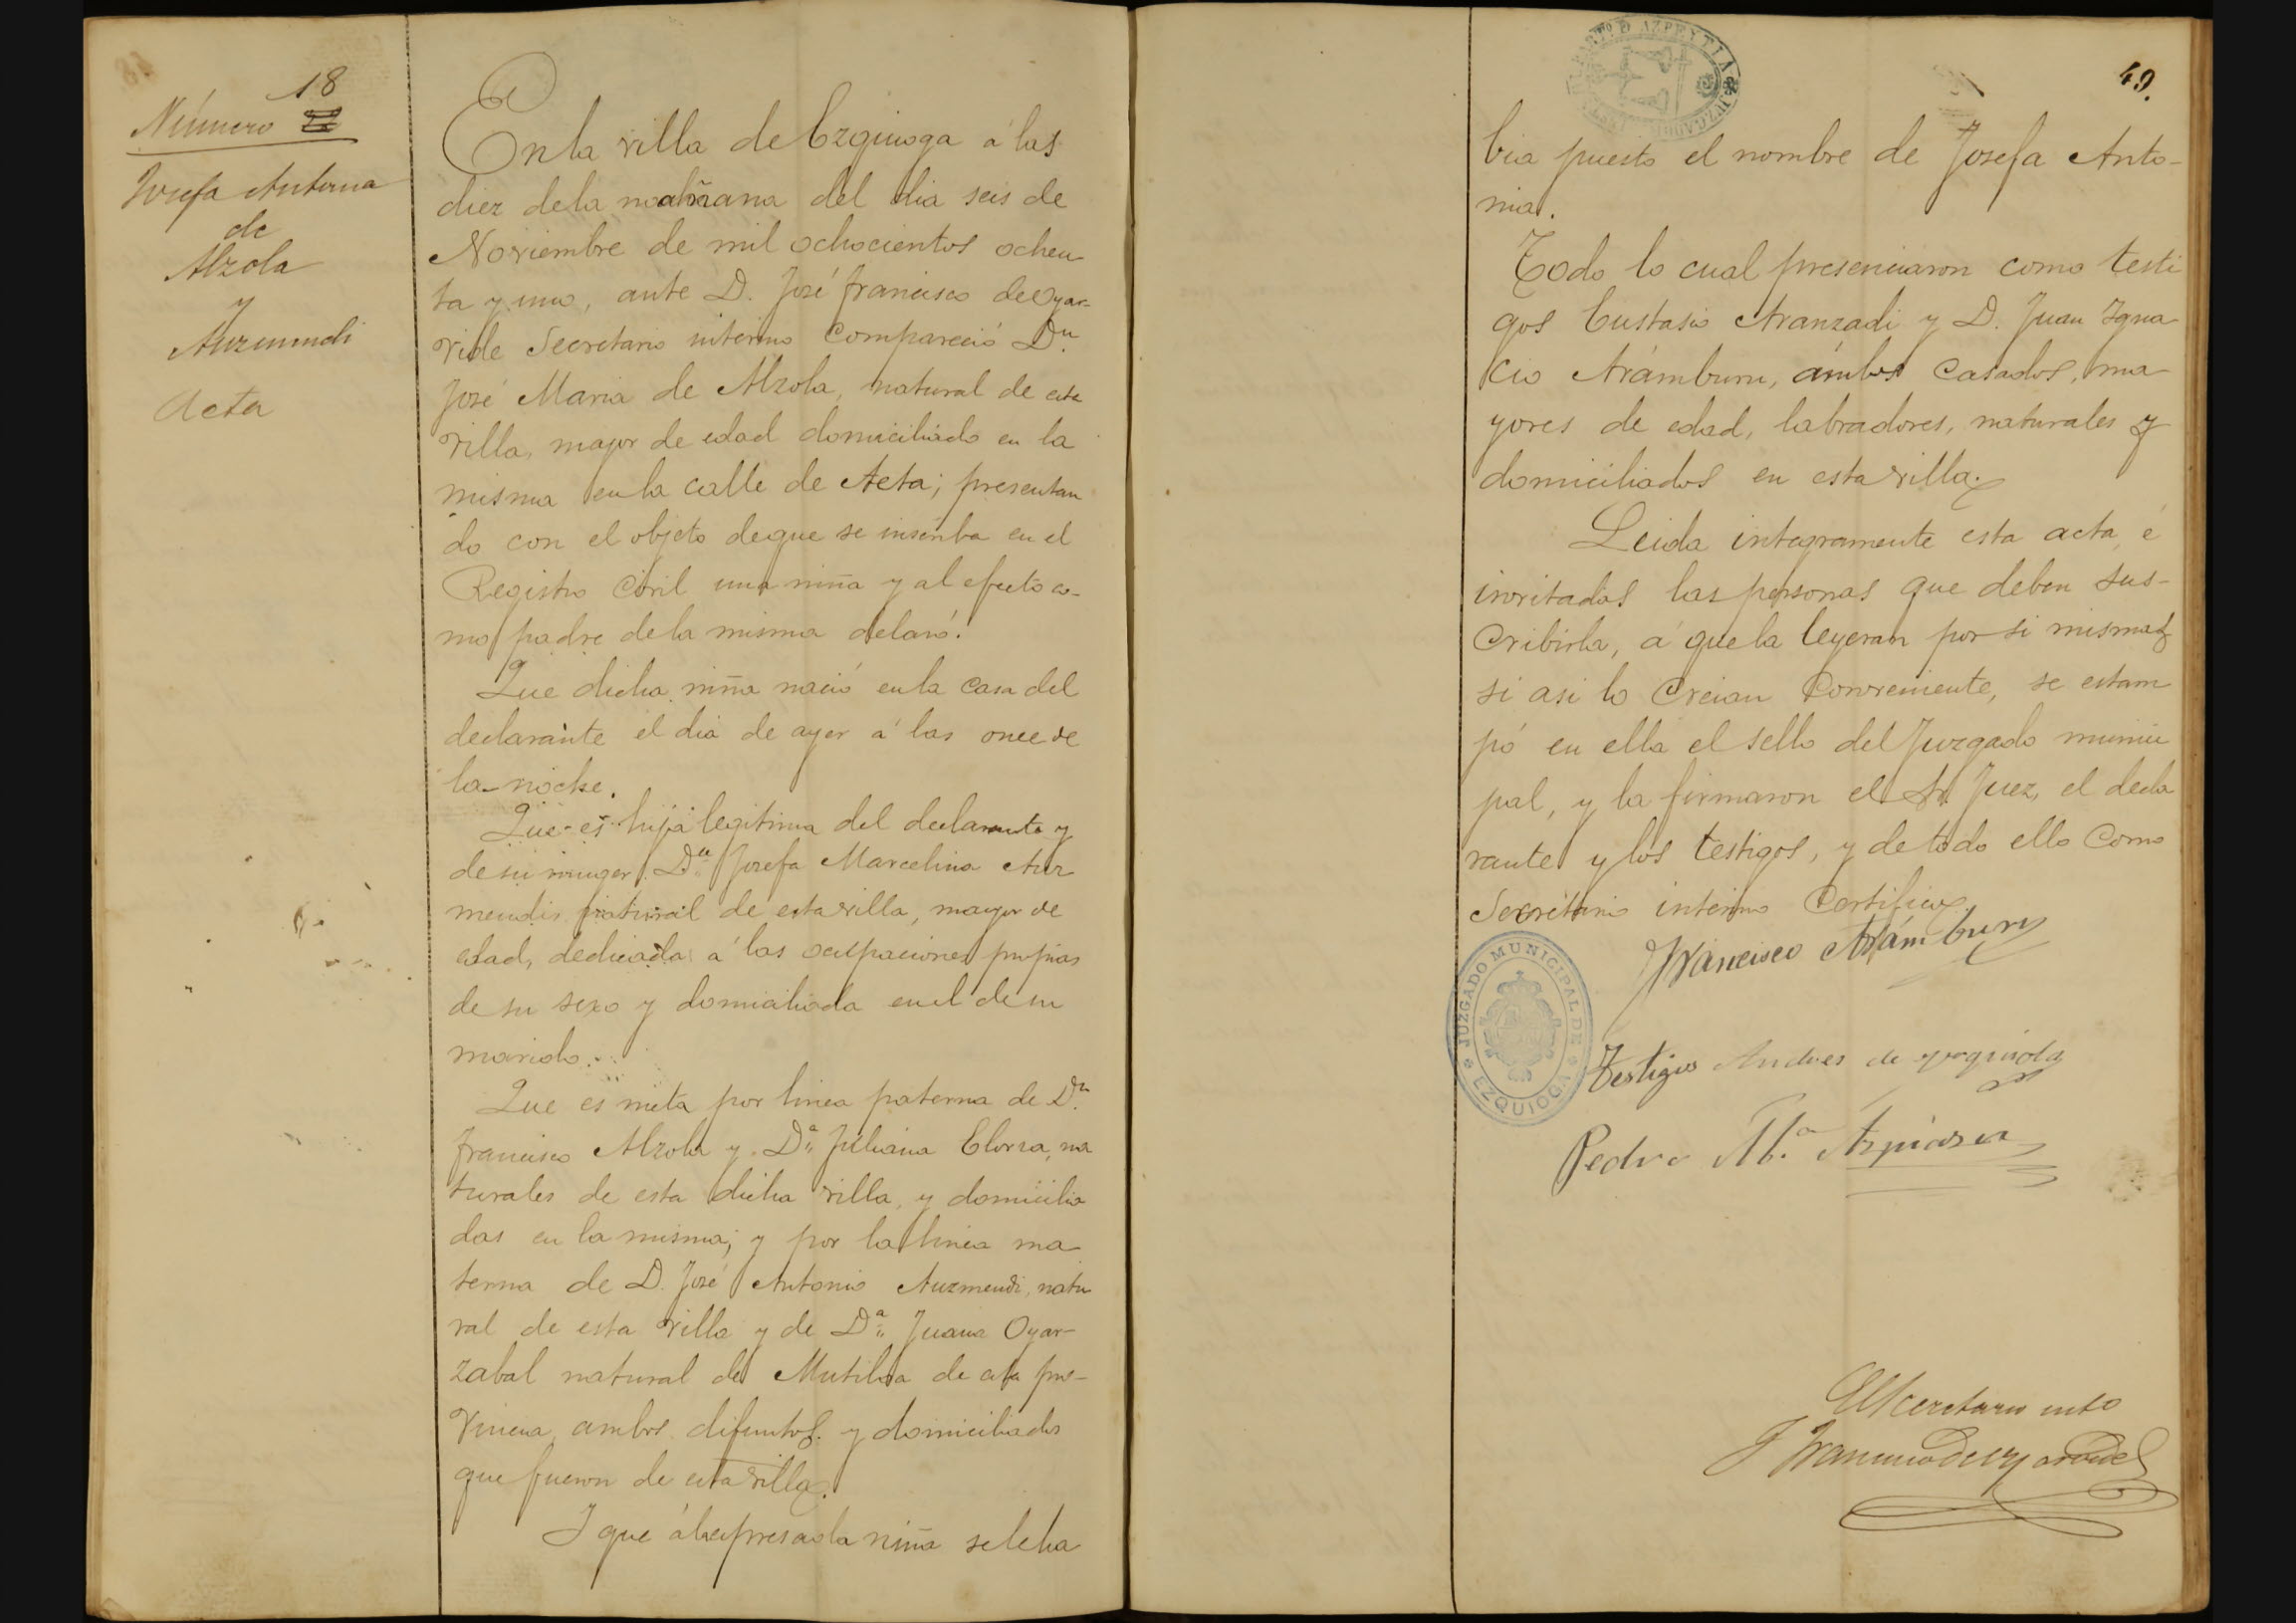 18
Número
Josefa Antonia
de
Alzola
y
Auzmendi
Acta
En la villa de Ezquioga á las
diez de la mañana del dia seis de
Noviembre de mil ochocientos ochen
ta y uno, ante D. José francisco de Oyar-
vide Secretario interino compareció Dn
José Maria de Alzola, natural de esta
villa, mayor de edad domiciliado en la
misma en la calle de Aeta; presentan
do con el objeto de que se inscriba en el
Registro Civil una niña y al efecto co-
mo padre de la misma delaró.
Que dicha niña nació en la casa del
declarante el dia de ayer á las once de
la noche.
Que es hija legitima del declarante y
de su muger Da Josefa Marcelina Auz
mendi, natural de esta villa, mayor de
edad, dedicada á las ocupaciones propias
de su sexo y domiciliada en el de su
marido.
Que es nieta por linea paterna de Dn
francisco Alzola y Da Juliana Elorza, na
turales de esta dicha villa, y domicilia
das en la misma; y por la linea ma
terna de D. José Antonio Auzmendi, natu
ral de esta villa y de Da Juana Oyar-
zabal natural de Mutiloa de esta pro-
vincia, ambos difuntos. y domiciliados
que fueron de esta villa.
Y que á la espresada niña se le ha
49.
bia puesto el nombre de Josefa Anto-
nia.
Todo lo cual presenciaron como testi
gos Eustasio Aranzadi y D. Juan Igna
cio Arámburu, ámbos casados, ma
yores de edad, labradores, naturales y
domiciliados en esta villa.
Leida integramente esta acta, é
invitadas las personas que deben sus-
cribirla, á que la leyeran por si mismas
si asi lo creian conveniente, se estam
pó en ella el sello del Juzgado munici
pal, y la firmaron el Sr. Juez, el decla
rante y los testigos, y de todo ello como
Secretario interino Certifico.
Francisco Arámburu
JUZGADO MUNICIPAL DE EZQUIOGA
Testigo Andres de
Pedro Ma. Azpiazu
El Secretario into
J Francisco de Oyarvide